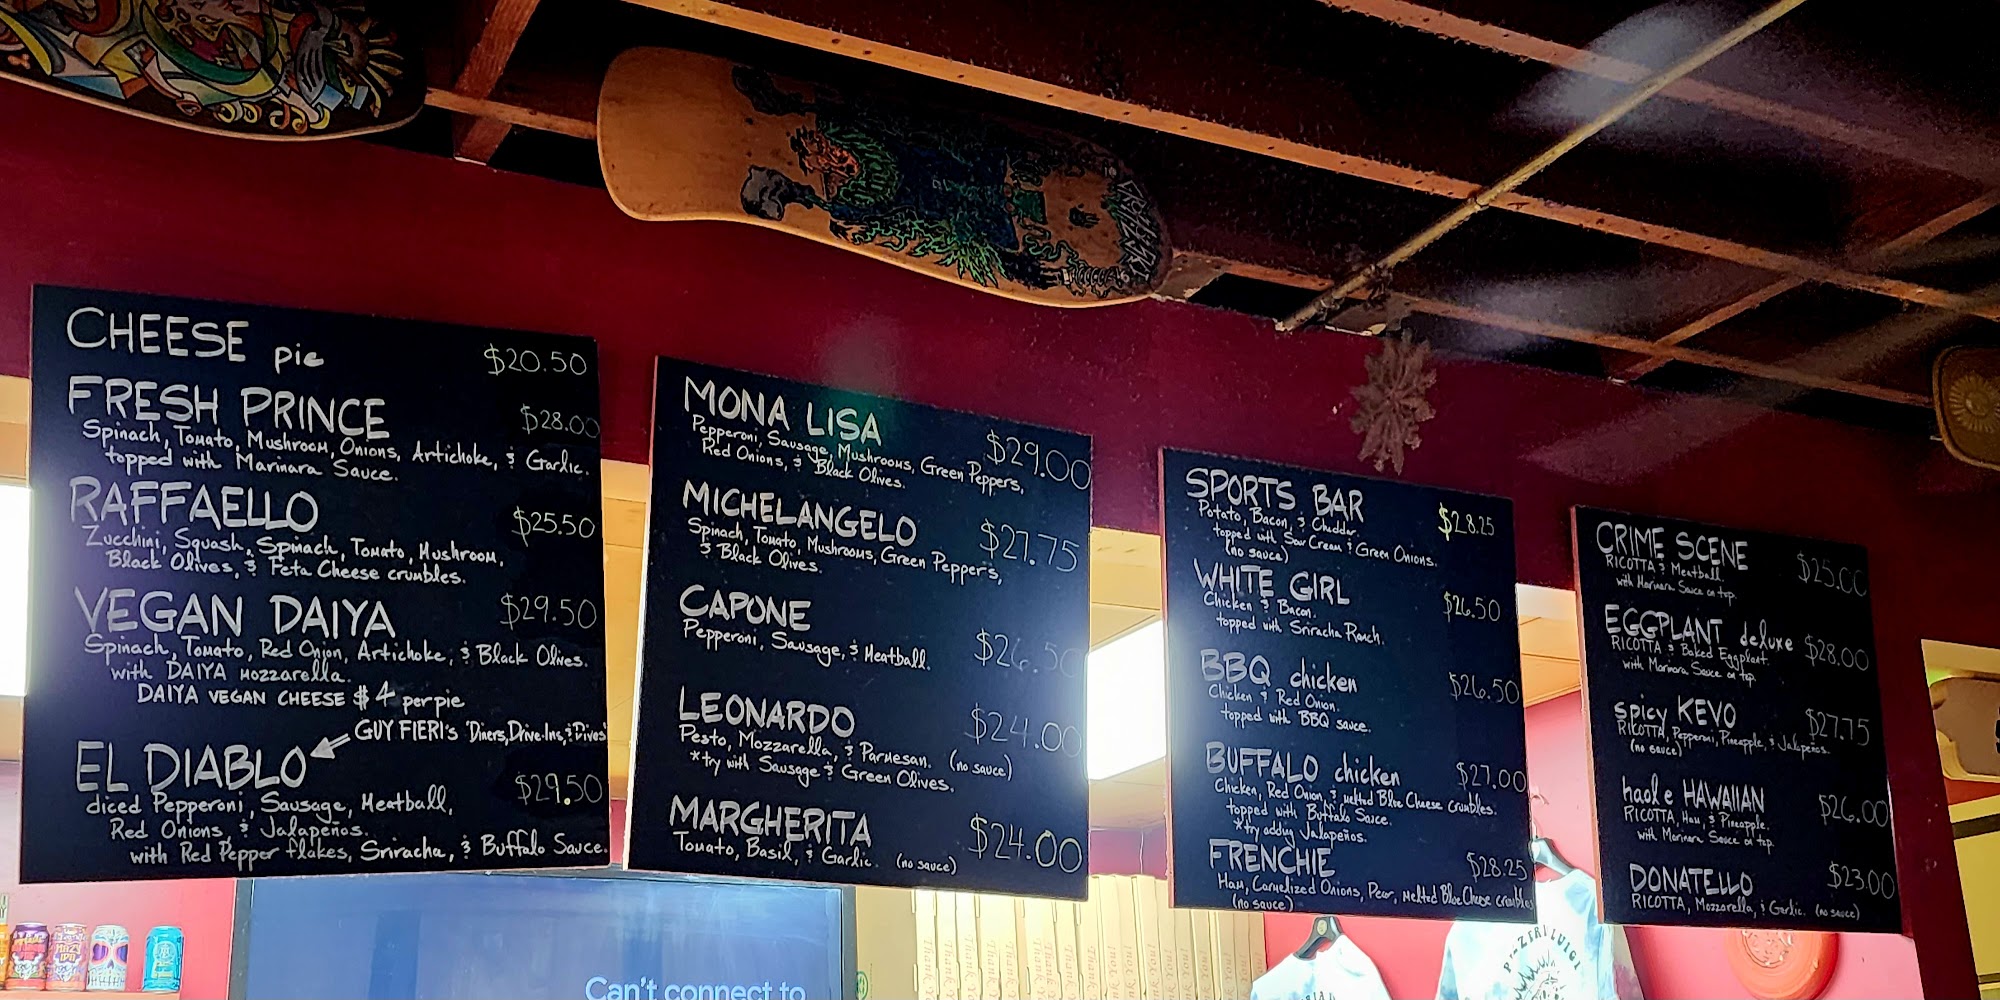 CHEESE pie $20.50
FRESH PRINCE $28.00
Spinach, Tomato, Mushroom, Onions, Artichoke, & Garlic.
topped with Marinara Sauce.
RAFFAELLO $25.50
Zucchini, Squash, Spinach, Tomato, Mushroom,
Black Olives, & Feta Cheese crumbles.
VEGAN DAIYA $29.50
Spinach, Tomato, Red Onion, Artichoke, & Black Olives.
with DAIYA mozzarella.
DAIYA VEGAN CHEESE $4 per pie
GUY FIERI's 'Diners, Drive-Ins, & Dives'
EL DIABLO $29.50
diced Pepperoni, Sausage, Meatball,
Red Onions, & Jalapeños.
with Red Pepper flakes, Sriracha, & Buffalo Sauce.
MONA LISA $29.00
Pepperoni, Sausage, Mushrooms, Green Peppers,
Red Onions, & Black Olives.
MICHELANGELO $27.75
Spinach, Tomato, Mushrooms, Green Peppers,
& Black Olives.
CAPONE $26.50
Pepperoni, Sausage, & Meatball.
LEONARDO $24.00
Pesto, Mozzarella, & Parmesan. (no sauce)
*try with Sausage & Green Olives.
MARGHERITA $24.00
Tomato, Basil, & Garlic. (no sauce)
SPORTS BAR $28.25
Potato, Bacon, & Cheddar.
topped with Sour Cream & Green Onions.
(no sauce)
WHITE GIRL $26.50
Chicken & Bacon.
topped with Sriracha Ranch.
BBQ chicken $26.50
Chicken & Red Onion.
topped with BBQ sauce.
BUFFALO chicken $27.00
Chicken, Red Onion, & melted Blue Cheese crumbles.
topped with Buffalo Sauce.
*try adding Jalapeños.
FRENCHIE $28.25
Ham, Carmelized Onions, Pear, melted Blue Cheese crumbles
(no sauce)
CRIME SCENE $25.00
RICOTTA & Meatball.
with Marinara Sauce on top.
EGGPLANT deluxe $28.00
RICOTTA & Baked Eggplant.
with Marinara Sauce on top.
spicy KEVO $27.75
RICOTTA, Pepperoni, Pineapple, & Jalapeños.
(no sauce)
haole HAWAIIAN $26.00
RICOTTA, Ham, & Pineapple.
with Marinara Sauce on top.
DONATELLO $23.00
RICOTTA, Mozzarella, & Garlic. (no sauce)
Can't connect to
HAZY
IPA
Thank You!
PIZZERIA LUIGI